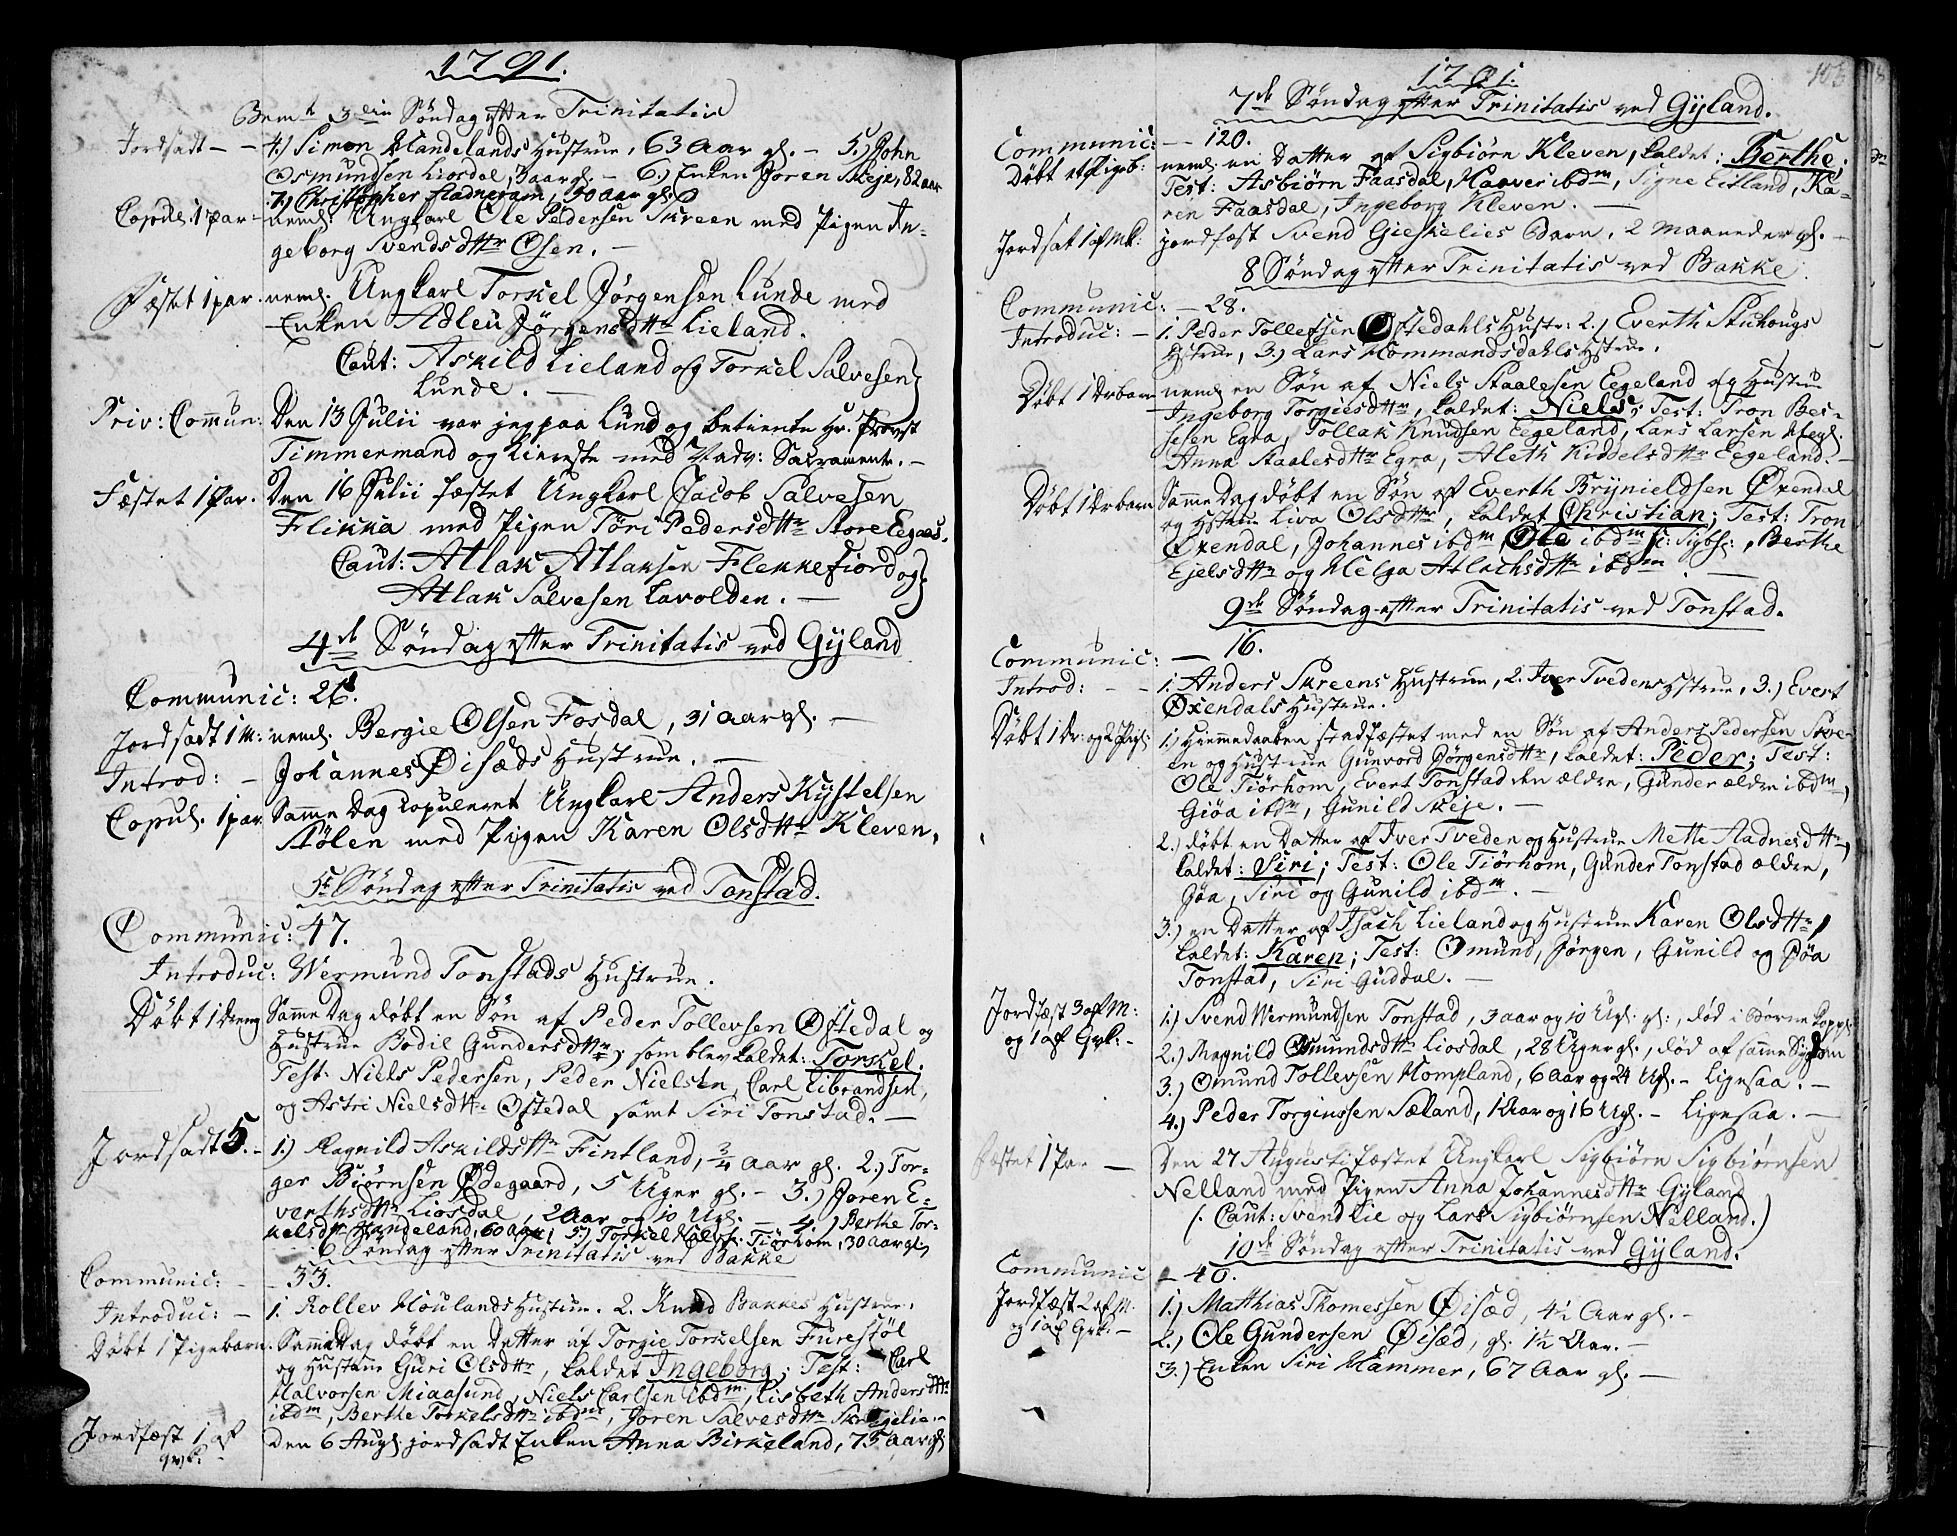 1791.
3die Søndag efter Trinitatis
Jordsadt — — 4.) Simon Handelands Hustrue, 63 Aar gl. — 5.) John
Osmundsen Liosdal, 3 aar gl. — 6.) Enken Joren Skeje, 82 aar
7.) Christopher Stadneram, 50 aar gl.
Copul. 1 par — neml. Ungkarl Ole Pedersen Skreen med Pigen In-
geborg Svendsdttr Osen. —
Fæstet 1 par. neml. Ungkarl Torkel Jørgensen Lunde med
Enken Adleu Jørgensdttr Lieland.
Caut: Askild Lieland og Torkel Salvesen
Lunde. —
Priv: Commun: Den 13 Julii var jeg paa Lund og betiente Hr. Provst
Timmermand og Kiereste med Nadv: Sacramente. —
Fæstet 1 Par. Den 16 Julii fæstet Ungkarl Jacob Salvesen
Flikka med Pigen Tøri Pedersdttr Store Eegaas.
Caut: Atlak Atlaksen Flekkefiord og
Atlak Salvesen Lavolden. —
4de Søndag efter Trinitatis ved Gyland
Communic: 26.
Jordsadt 1 M: neml. Bergie Olsen Fosdal, 31 aar gl. —
Introd: — Johannes Øisæds Hustrue. —
Copul. 1 par. Samme Dag Copuleret Ungkarl Anders Kystelsen
Stølen med Pigen Karen Olsdttr Kleven.
5te Søndag efter Trinitatis ved Tonstad.
Communic: 47.
Introduc: Wermund Tonstads Hustrue.
Døbt 1 Dreng Samme Dag døbt en Søn af Peder Tollevsen Østedal og
Hustrue Bodil Gundersdttr, som blev kaldet: Torkel.
Test: Niels Pedersen, Peder Nielsen, Carl Librandsen,
og Astri Nielsdttr Østedal samt Siri Tonstad. —
Jordsadt 5. — 1.) Ragnild Askildsdttr Fintland, 3/4 Aar gl. 2.) Tor-
ger Biørnsen Ødegaard, 5 Uger gl. — 3.) Joren E-
verthsdttr Liosdal, 2 Aar og 10 Ugl. — 4.) Berthe Tor-
kelsdttr Handeland, 60 aar, 5.) Torkel Halvs: Tiørhom, 30 Aar gl.
6 Søndag efter Trinitatis ved Bakke
Communic: — — 33.
Introduc: — 1. Rollev Houlands Hustrue. 2. Knud Bakkes Hustrue.
Døbt 1 Pigebarn. Samme Dag døbt en Datter af Torgie Torkelsen Furestøl
og Hustrue Guri Olsdttr, kaldet Ingeborg; Test: Carl
Halvorsen Miaasund, Niels Carlsen ibdm, Lisbeth Andersdttr
ibdm, Berthe Torkelsdttr ibdm, Joren Salvesdttr
Jordfæst 1 af Den 6 Augl. jordsadt Enken Anna Birkeland, 75 aar gl.
qvk: —
1791.
7de Søndag efter Trinitatis ved Gyland.
Communic: — 120.
Døbt et Pigeb: neml. en Datter af Sigbiørn Kleven, kaldet: Berthe;
Test: Asbiørn Faasdal, Haaver ibdm, Signe Eitland, Ka-
ren Faasdal, Ingeborg Kleven. —
Jordsat 1 af Mk: jordfæst Svend Gieskelies Barn, 2 Maaneder gl. —
8 Søndag efter Trinitatis ved Bakke.
Communic: — 28.
Introduc: — 1. Peder Tollefsen Østedahls Hustr: 2.) Everth Stuhougs
Hstrue, 3.) Lars Hommandsdahls Hstrue.
Døbt 1 Drbarn neml. en Søn af Niels Staalesen Eegeland og Hustrue
Ingeborg Torgiesdttr, kaldet: Niels; Test: Tron Bes-
sesen Egra, Tollak Knudsen Eegeland, Lars Larsen
Anna Staalesdttr Egra, Aleth Kiddelsdttr Eegeland. —
Døbt 1 Drbarn Samme Dag døbt en Søn af Everth Brynieldsen Øxendal
og Hstrue Liva Olsdttr, kaldet Christian; Test: Tron
Øxendal, Johannes ibdm, Ole ibdm, Berthe
Ejelsdttr og Helga Atlachsdttr ibdm —
9de Søndag efter Trinitatis ved Tonstad.
Communic: — 16.
Introd: — — 1. Anders Skreens Hustrue, 2. Iver Tvedens Hstrue, 3.) Evert
Øxendals Hustrue.
Døbt 1 Dr: og 2 Pigl: 1.) Hiemmedaaben stadfæstet med en Søn af Anders Pedersen Skre-
en og Hustrue Gunvord Jørgensdttr, kaldet: Peder; Test:
Ole Tiørhom, Evert Tonstad den ældre, Gunder ældre ibdm,
Giøa ibdm, Gunild Skeje. —
2.) døbt en Datter af Iver Tveden og Hustrue Mette Aadnesdttr,
kaldet: Siri; Test: Ole Tiørhom, Gunder Tonstad ældre,
Jøa, Siri og Gunild ibdm. —
3.) en Datter af Isach Lieland og Hustrue Karen Olsdttr,
kaldet: Karen; Test: Omund, Jørgen, Gunild og Jøa
Tonstad, Siri Guddal. —
Jordfæst 3 af M: 1.) Svend Wermundsen Tonstad, 3 aar og 10 Ugl. gl., død i Børnekopper
og 1 af Qvk: — 2.) Magnild Osmundsdttr Liosdal, 28 Uger gl., død af samme Sygdom
3.) Omund Tollevsen Hompland, 6 Aar og 24 Ugl. — ligesaa. —
4.) Peder Torgiussen Sæland, 1 Aar og 16 Ugl. — ligesaa. —
Fæstet 1 Par — Den 27 Augusti fæstet Ungkarl Sigbiørn Sigbiørnsen
Nelland med Pigen Anna Johannesdttr Gyland
(. Caut: Svend Lie og Lars Sigbiørnsen Nelland.)
10de Søndag efter Trinitatis ved Gyland.
Communic — 40.
Jordfæst 2 af M. 1.) Matthias Thomessen Øisæd, 4½ Aar gl. —
og 1 af Qvk: — 2.) Ole Gundersen Øisæd, gl. 1½ Aar. —
3.) Enken Siri Hammer, 67 Aar gl. —